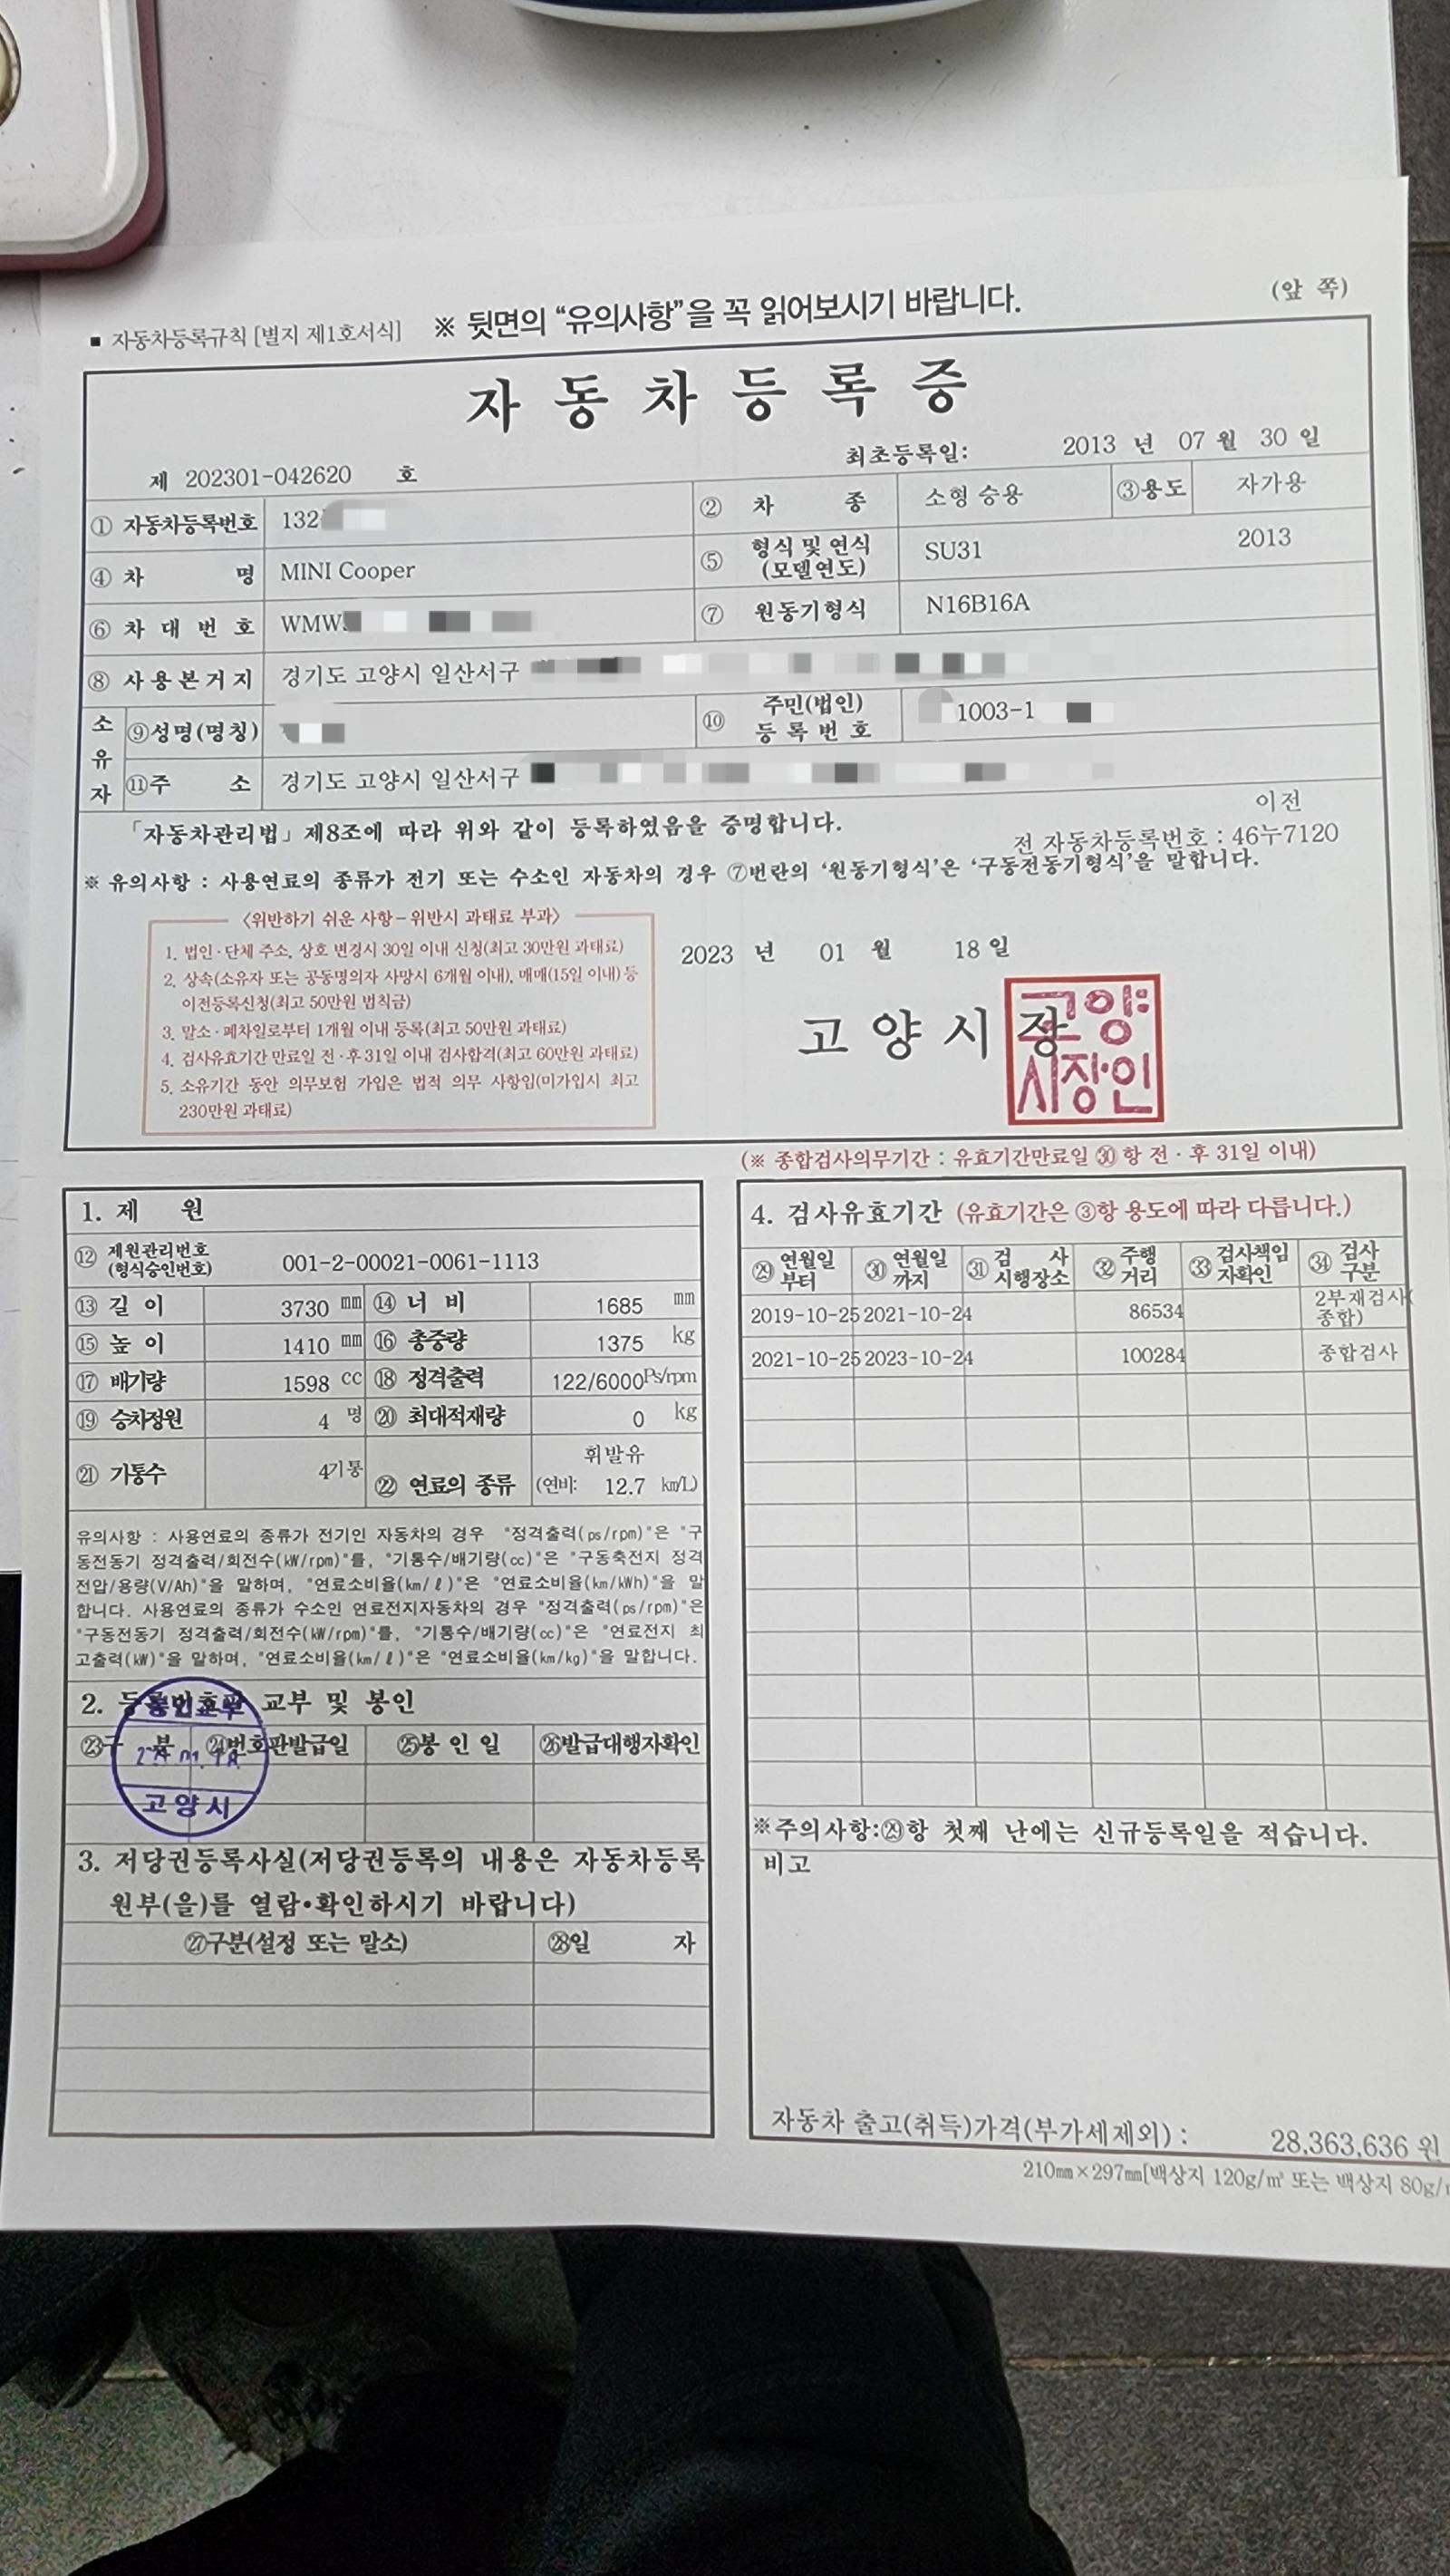 (앞 쪽)
■ 자동차등록규칙 [별지 제1호서식] ※ 뒷면의 “유의사항”을 꼭 읽어보시기 바랍니다.
자 동 차 등 록 증
제 202301-042620 호 최초등록일: 2013 년 07 월 30 일
① 자동차등록번호 132 ② 차 종 소형 승용 ③용도 자가용
④ 차 명 MINI Cooper ⑤ 형식 및 연식 (모델연도) SU31 2013
⑥ 차 대 번 호 WMW ⑦ 원동기형식 N16B16A
⑧ 사 용 본 거 지 경기도 고양시 일산서구
소 유 자 ⑨성명(명칭) ⑩ 주민(법인) 등 록 번 호 1003-1
⑪주 소 경기도 고양시 일산서구
「자동차관리법」 제8조에 따라 위와 같이 등록하였음을 증명합니다.
이전
전 자동차등록번호 : 46누7120
※ 유의사항 : 사용연료의 종류가 전기 또는 수소인 자동차의 경우 ⑦번란의 ‘원동기형식’은 ‘구동전동기형식’을 말합니다.
〈위반하기 쉬운 사항－위반시 과태료 부과〉
1. 법인·단체 주소, 상호 변경시 30일 이내 신청(최고 30만원 과태료)
2. 상속(소유자 또는 공동명의자 사망시 6개월 이내), 매매(15일 이내) 등
이전등록신청(최고 50만원 범칙금)
3. 말소·폐차일로부터 1개월 이내 등록(최고 50만원 과태료)
4. 검사유효기간 만료일 전·후 31일 이내 검사합격(최고 60만원 과태료)
5. 소유기간 동안 의무보험 가입은 법적 의무 사항임(미가입시 최고
230만원 과태료)
2023 년 01 월 18 일
고 양 시 장
고양시장인
(※ 종합검사의무기간 : 유효기간만료일 ㉚ 항 전·후 31일 이내)
1. 제 원
⑫ 제원관리번호 (형식승인번호) 001-2-00021-0061-1113
⑬ 길 이 3730 ㎜ ⑭ 너 비 1685 ㎜
⑮ 높 이 1410 ㎜ ⑯ 총중량 1375 kg
⑰ 배기량 1598 cc ⑱ 정격출력 122/6000 Ps/rpm
⑲ 승차정원 4 명 ⑳ 최대적재량 0 kg
㉑ 기통수 4기통 ㉒ 연료의 종류 휘발유 (연비: 12.7 ㎞/L)
유의사항 : 사용연료의 종류가 전기인 자동차의 경우 "정격출력(ps/rpm)"은 "구
동전동기 정격출력/회전수(kW/rpm)"를, "기통수/배기량(cc)"은 "구동축전지 정격
전압/용량(V/Ah)"을 말하며, "연료소비율(km/ℓ)"은 "연료소비율(km/kWh)"을 말
합니다. 사용연료의 종류가 수소인 연료전지자동차의 경우 "정격출력(ps/rpm)"은
"구동전동기 정격출력/회전수(kW/rpm)"를, "기통수/배기량(cc)"은 "연료전지 최
고출력(kW)"을 말하며, "연료소비율(km/ℓ)"은 "연료소비율(km/kg)"을 말합니다.
2. 등록번호판 교부 및 봉인
㉓구 분 ㉔번호판발급일 ㉕봉 인 일 ㉖발급대행자확인
고양시
3. 저당권등록사실(저당권등록의 내용은 자동차등록
원부(을)를 열람•확인하시기 바랍니다)
㉗구분(설정 또는 말소) ㉘일 자
4. 검사유효기간 (유효기간은 ③항 용도에 따라 다릅니다.)
㉙ 연월일 부터 ㉚ 연월일 까지 ㉛ 검 사 시행장소 ㉜ 주행 거리 ㉝ 검사책임 자확인 ㉞ 검사 구분
2019-10-25 2021-10-24 86534 2부재검사(종합)
2021-10-25 2023-10-24 100284 종합검사
※주의사항:㉙항 첫째 난에는 신규등록일을 적습니다.
비고
자동차 출고(취득)가격(부가세제외) : 28,363,636 원
210㎜×297㎜[백상지 120g/㎡ 또는 백상지 80g/